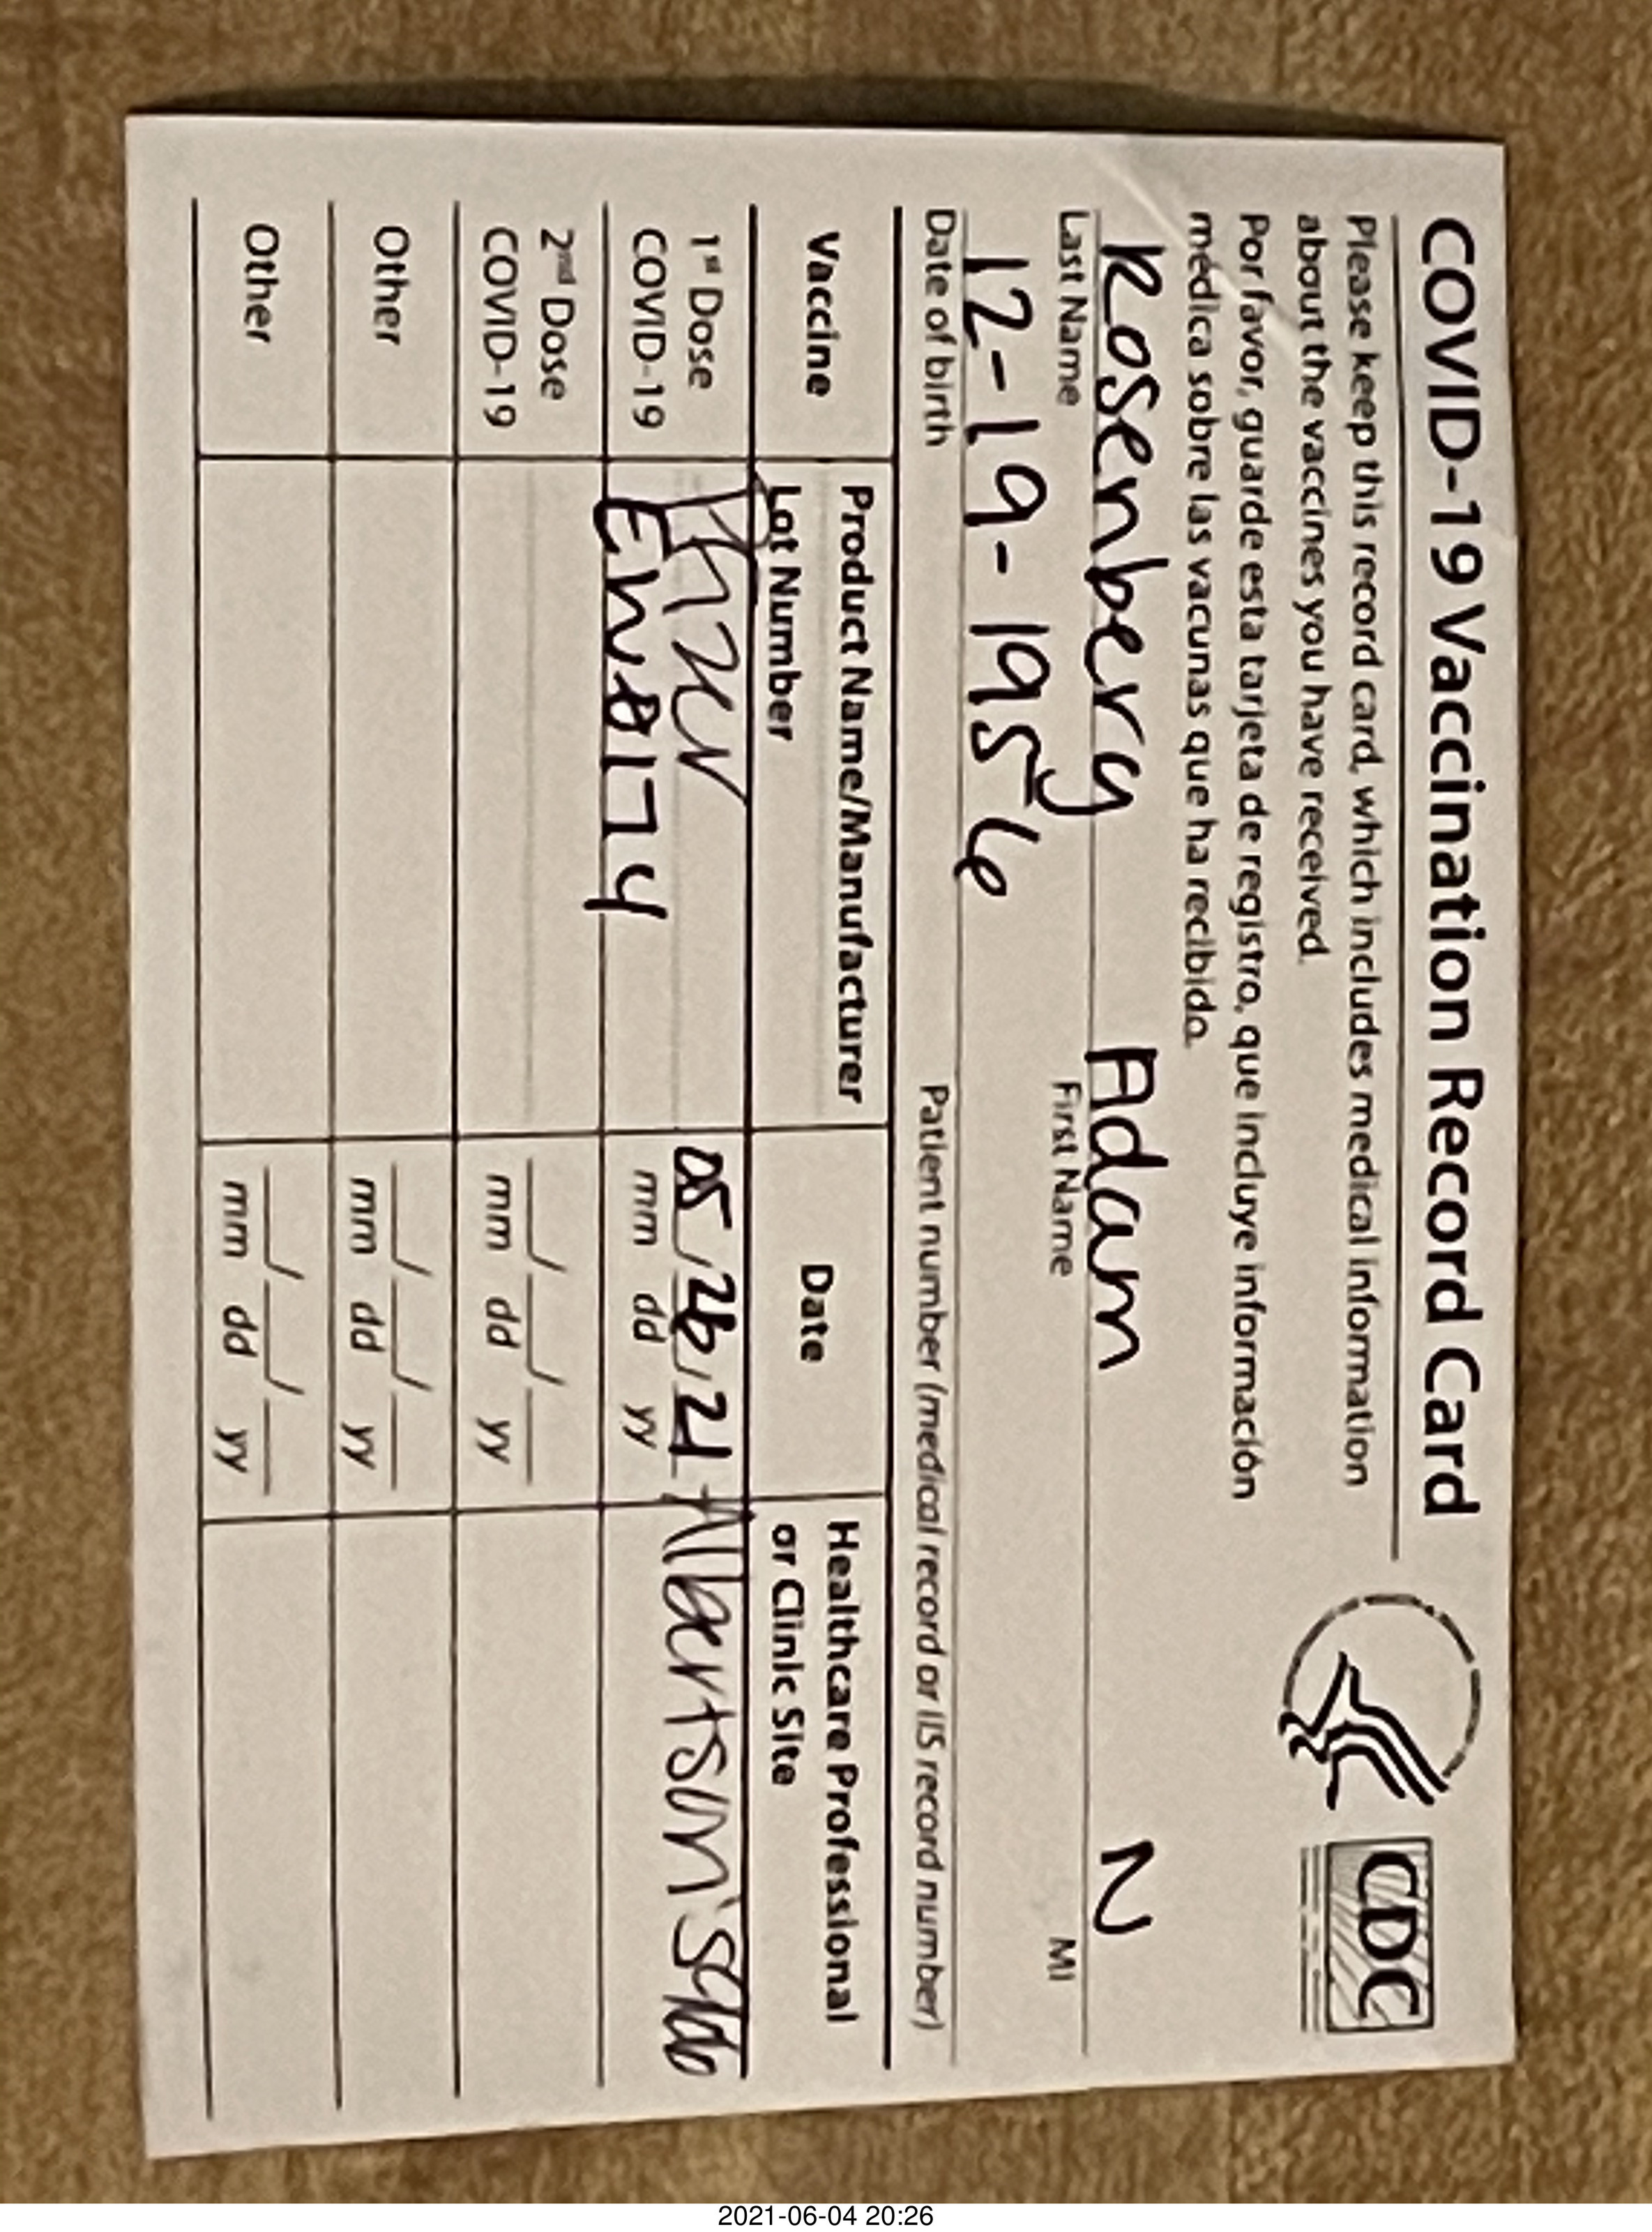 COVID-19 Vaccination Record Card
CDC
Please keep this record card, which includes medical information
about the vaccines you have received.
Por favor, guarde esta tarjeta de registro, que incluye información
médica sobre las vacunas que ha recibido.
Rosenberg Adam N
Last Name First Name MI
12-19-1956
Date of birth Patient number (medical record or IIS record number)
Vaccine Product Name/Manufacturer Date Healthcare Professional
Lot Number or Clinic Site
1st Dose Pfizer 05/26/21 Albertson's
COVID-19 EW0174 mm dd yy
2nd Dose __/__/__
COVID-19 mm dd yy
Other __/__/__
mm dd yy
Other __/__/__
mm dd yy
2021-06-04 20:26